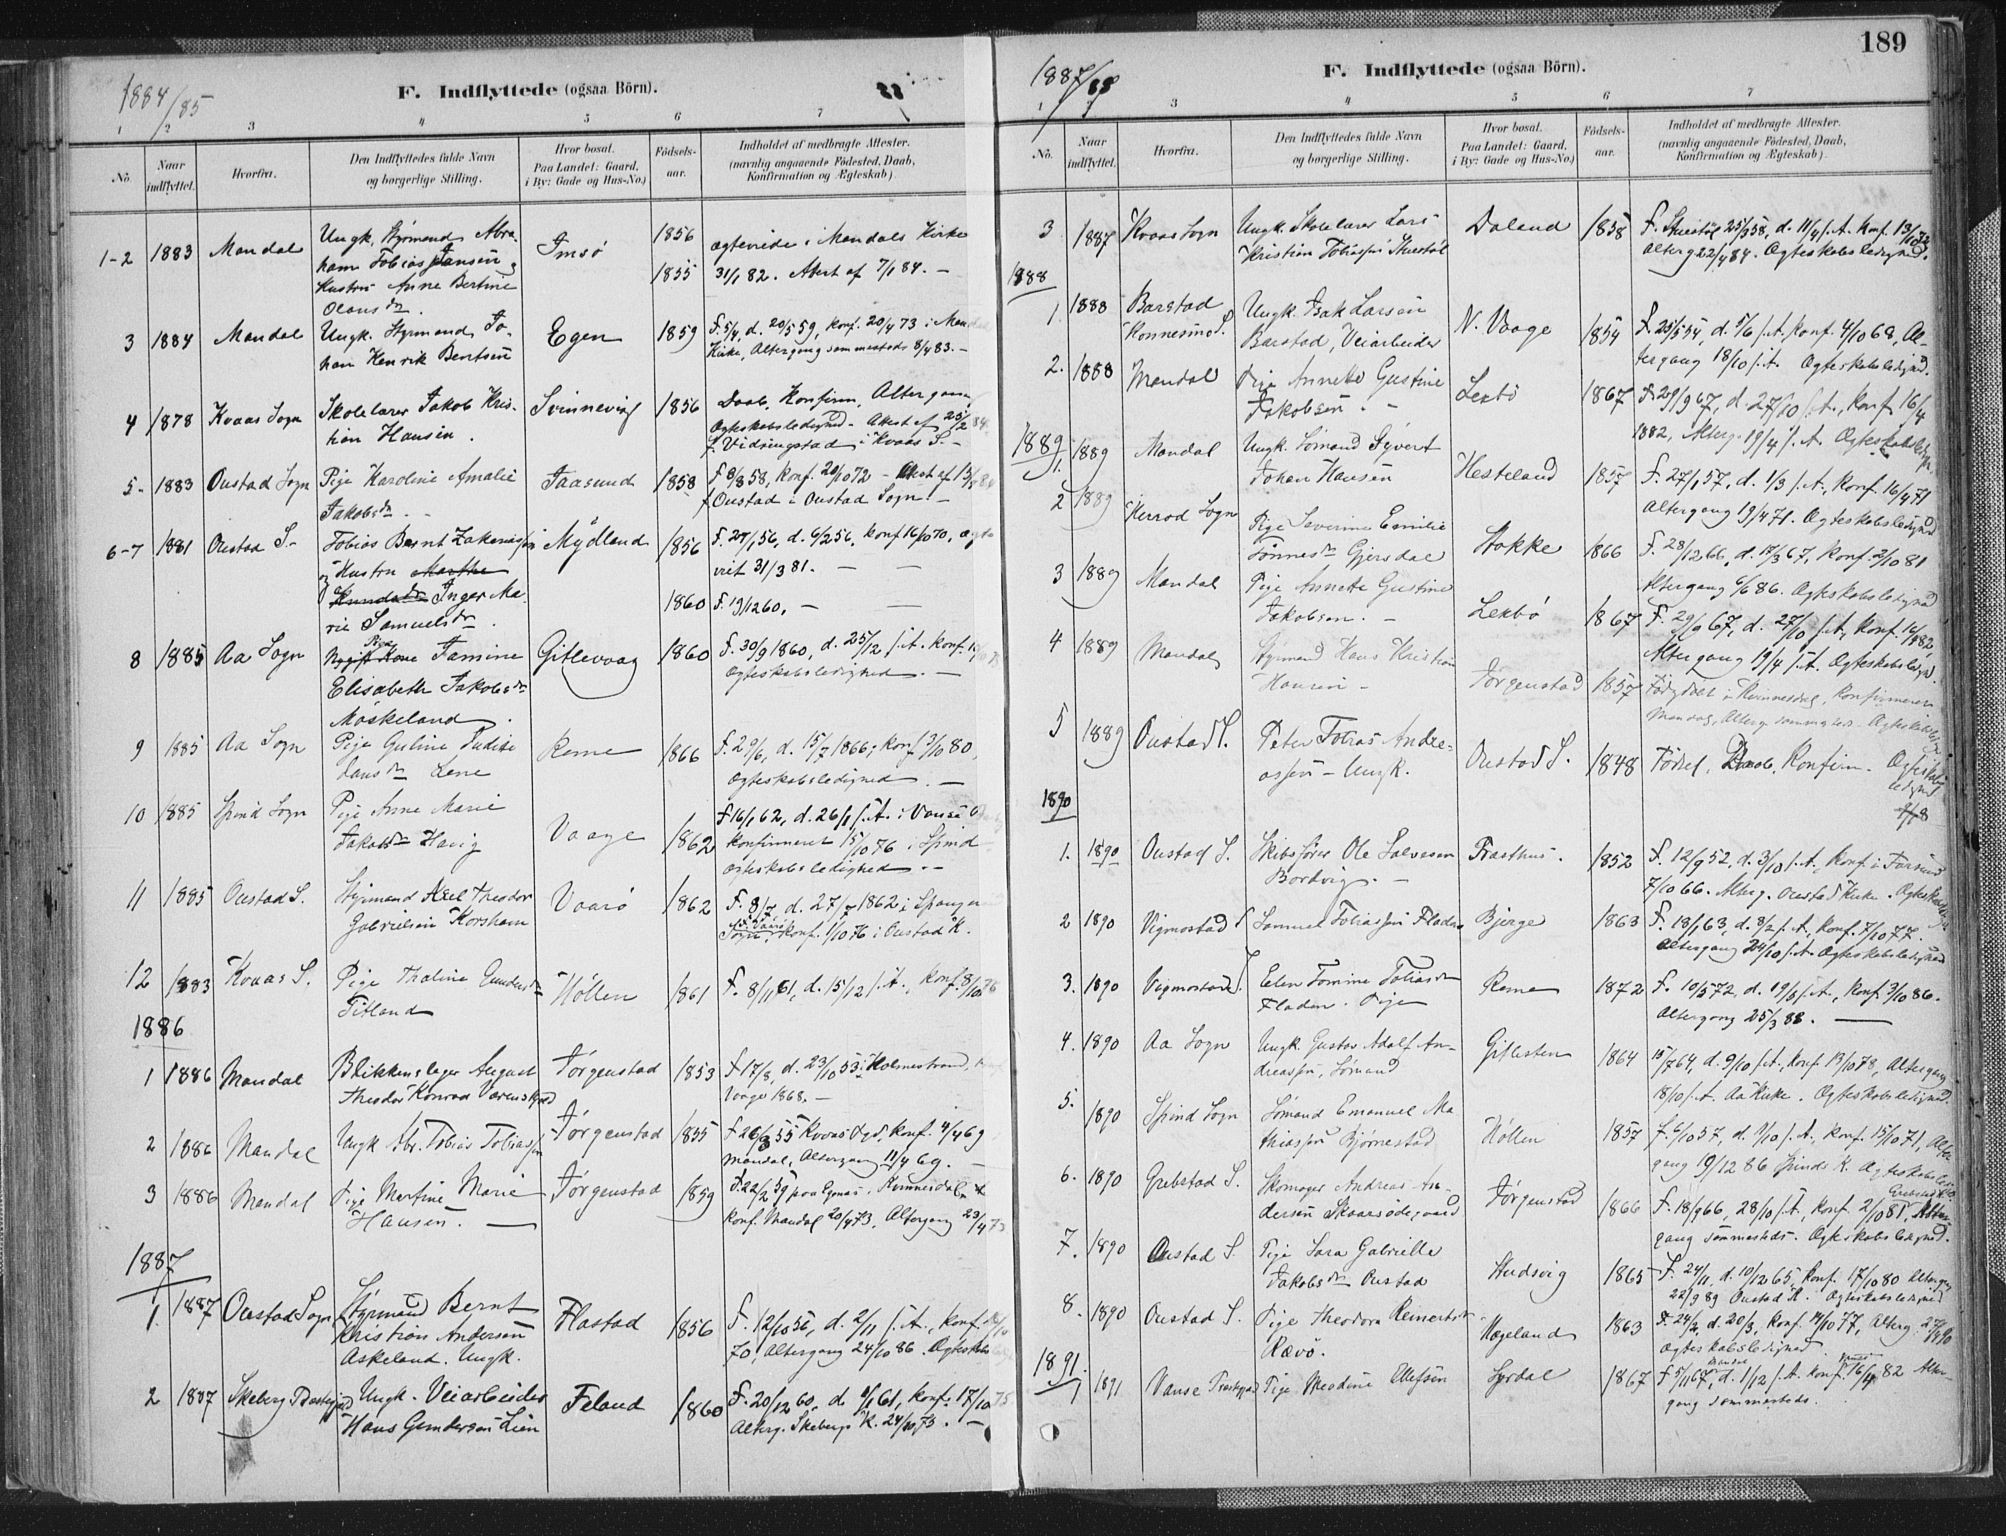 1884/85
F. Indflyttede (ogsaa Börn).
1 2 3 4 5 6 7
No.
Naar indflyttet.
Hvorfra.
Den Indflyttedes fulde Navn og borgerlige Stilling.
Hvor bosat. Paa Landet: Gaard, i By: Gade og Hus-No.)
Födsels-aar.
Indholdet af medbragte Attester. (navnlig angaaende Födested, Daab, Konfirmation og Ægteskab).
1-2 1883 Mandal Ungk. Styrmand Abra- Imsö 1856 ægteviede i Mandals Kirke
ham Tobias Jansen og 1855 31/1 82. Attest af 7/1 84. -
Hustru Anne Bertine
Olausdn.
3 1884 Mandal Ungk. Styrmand Jo- Egen 1859 F. 5/4, d. 20/5 59, konf. 20/4 73 i Mandal
han Henrik Berntsen Kirke, Altergang sammesteds 8/4 83. -
4 1878 Kvaas Sogn Skolelærer Jakob Kris- Svinnevig 1856 Daab, Konfirm, Altergang,
tian Hansen. Ægteskabsledighed - Attest af 25/2 84.
f. Vidringstad i Kvaas S. -
5- 1883 Oustad Sogn Pige Karoline Amalie Faasund 1858 F 8/8 58, konf. 20/10 72 - Attest af
Jakobsdn. f Oustad i Oustad Sogn. -
6-7 1881 Oustad S. Tobias Bernt Zakariassen Mydland 1856 F. 27/1 56, d. 6/2 56, konf 16/10 70, ægte
og Hustru viet 31/3 81. -
Inger Ma- 1860 F. 19/12 60. -
rie Samuelsdn.
8 1885 Aa Sogn Pige Jamine Gitlevaag 1860 F. 30/9 1860, d. 25/12 s. A. konf.
Elisabeth Jakobsdn Ægteskabsledighed. -
Möskeland.
9 1885 Aa Sogn Pige Guline Judite Rome 1866 F. 29/6, d. 15/7 1866, konf 3/10 80,
Lene Ægteskabsledighed. -
10 1885 Spind Sogn Pige Anne Marie Vaage 1862 F 16/1 62, d. 26/1 s. A. i Vanse
Jakobsdn Havig konfirmeret 15/10 76 i Spind
ægteskabsledighed. -
11 1885 Oustad S. Styrmand Axel Theodor Vaarö 1862 F. 8/7, d. 27/7 1862 i
Gabrielsen Korsham Sogn, konf. 1/10 76 i Oustad K.
12 1883 Kvaas S. Pige Thaline Gundersdn Höllen 1861 F. 8/11 61, d. 15/12 s. A., konf. 8/10 76
Titland
1886
1 1886 Mandal Blikkenslager August Jörgenstad 1853 F 17/8, d. 23/10 53 i Holmestrand,
Theodor Konrad 1868. -
2 1886 Mandal Ungk. Tobias Tobiassen Jörgenstad 1855 F 26/3 55 Kvaas Sogn, konf. 4/4 69
Mandal, Altergang 11/4 69. -
3 1886 Mandal Pige Martine Marie Jörgenstad 1859 F. 22/2 59 paa Kvinnesdal
Hansen. - konf. Mandal 20/4 73, Altergang 23/4 73
1887
1. 1887 Oustad Sogn Styrmand Bernt Flastad 1856 F. 12/10 56, d. 2/11 s. A., konf.
Kristian Andersen 70, Altergang 24/10 86. Ægteskabs
Askeland. Ungk.
2 1887 Skeberg Præstegjæld Ungk. Veiarbeider Feland 1860 F. 20/12 60, d. 6/1 61, konf. 17/10 75
Hans Gundersen Lien Alterg. Skebergs K. 24/10 75. -
189
1887/88
F. Indflyttede (ogsaa Börn).
1 2 3 4 5 6 7
No.
Naar indflyttet.
Hvorfra.
Den Indflyttedes fulde Navn og borgerlige Stilling.
Hvor bosat. Paa Landet: Gaard, i By: Gade og Hus-No.)
Födsels-aar.
Indholdet af medbragte Attester. (navnlig angaaende Födested, Daab, Konfirmation og Ægteskab).
3 1887 Kvaas Sogn Ungk. Skolelærer Lars Daland 1858 F. Skuestöl 25/3 58, d. 11/4 s. A. konf. 13/10 72
Kristian Tobiassen Skuestöl Alterg 22/4 84. Ægteskabsledighed.
1888
1. 1888 Barstad Ungk. Isak Larsen N. Vaage 1854 F. 25/5 54, d. 5/6 s. A. konf. 4/10 68, Al-
Konnesmo S. Barstad, Veiarbeider tergang 18/10 s. A. Ægteskabsledighed.
2. 1888 Mandal Pige Annette Gustine Lexbö 1867 F. 29/9 67, d. 27/10 s. A., konf 16/4
Jakobsen. - 1882, Alterg. 19/4 s. A. Ægteskabsledighed.
1889
1. 1889 Mandal Ungk. Sömand Syvert Hesteland 1857 F. 27/1 57, d. 1/3 s. A., konf. 16/4 71
Johan Hansen Altergang 19/4 71. Ægteskabsledighed
2 1889 Herrad Sogn Pige Severine Emilie Hokke 1866 F. 28/12 66, d. 17/3 67, konf. 2/10 81
Tönnesdn Gjersdal Altergang 6/6 86. Ægteskabsledighed
3 1889 Mandal Pige Annette Gustine Lexbö 1867 F. 29/9 67, d. 27/10 s. A., konf. 16/4 82,
Jakobsen. - Altergang 19/4 s. A. Ægteskabsledighed.
4 1889 Mandal Styrmand Hans Kristian Jörgenstad 1857 Född i Kvinnesdal, Konfirmeret
Hansen - Mandal, Alterg sammesteds. Ægteskabsledig
5 1889 Oustad S. Peter Tobias Andre- Oustad S. 1848 Födsel, Daab, Konfirm. Ægteskabs
assen - Ungk. ledighed
1890
1. 1890 Oustad S. Skibsförer Ole Salvesen Præsthus. 1852 F. 12/9 52, d. 3/10 s. A. konf. i Farsund
Bordvig. - 7/10 66. Alterg. Oustad Kirke.
2 1890 Vigmostad S Samuel Tobiassen Fladen Bjerge 1863 F. 18/1 63, d. 8/2 s. A, konf. 7/10 77.
Altergang 24/10 s. A. Ægteskabsledighed
3. 1890 Vigmostad S. Elen Tomine Tobiasdn Rome 1872 F. 10/5 72, d. 19/5 s. A., konf. 3/10 86.
Fladen. Pige Altergang 25/3 88. -
4. 1890 Aa Sogn Ungk. Gustav Adolf An- Gitlesten 1864 15/7 64, d. 9/10 s. A., konf. 13/10 78, Altergang
dreassen, Sömand 18/10 s. A. Aa Kirke. Ægteskabsledighed.
5. 1890 Spind Sogn Sömand Emanuel Ma Höllen 1857 F. 6/10 57, d. s. A., konf. 15/10 71, Alter
thiassen Björnestad gang 19/12 86 Spinds K. Ægteskabsled
6. 1890 Grebstad S. Skomager Andreas An- Jörgenstad 1866 F. 18/9 66, 28/10 s. A., konf. 2/10 81, Alter-
dersen gang sammesteds. Ægteskabsledighed.
7. 1890 Oustad S. Pige Sara Gabrielle Studsvig 1865 F. 24/11, d. 10/12 65, konf. 17/10 80 Altergang
Jakobsdn Oustad 22/9 89 Oustad K. Ægteskabsledighed
8. 1890 Oustad S. Pige Theodora Reinertsdn Hægeland 1863 F. 24/2, d. 20/3, konf. 14/10 77, Alterg.
Rævö. Ægteskabsledighed
1891
1 1891 Vanse Præstegjæld Pige Meodine Ellefsen Lyrdal 1867 F 5/11 67, d. 1/12 s. A. konf. 16/4 82 Alter-
gang sammesteds.